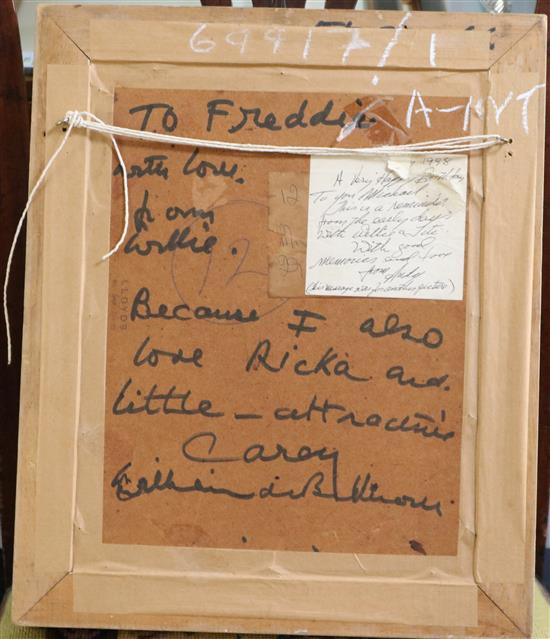 69917/1
A-NVT
TO Freddie
with love.
from
Willie.
1998
A Very Happy Birthday
To you Michael
This is a reminder
from the early days
With Willie &
With good
memories and love
from
(This message was for another picture)
12
LLOYDS
Because I also
love Ricka and
little – attractive
Carey